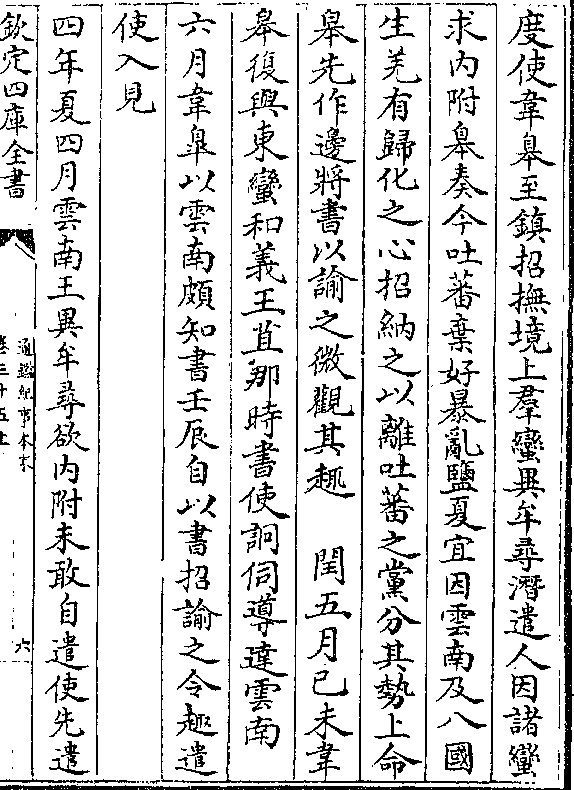 度使韋皋至鎮招撫境上羣蠻異牟尋潛遣人因諸蠻
求内附皋奏今吐蕃棄好暴亂鹽夏宜因雲南及八國
生羌有歸化之心招納之以離吐蕃之黨分其勢上命
皋先作邊將書以諭之微觀其趣　閏五月已未韋
皋復與東蠻和義王苴那時書使詗伺導達雲南
六月韋皋以雲南頗知書壬辰自以書招諭之令趣遣
使入見
四年夏四月雲南王異牟尋欲内附未敢自遣使先遣
欽定四庫全書
通鑑紀事本末
卷三十五上
六